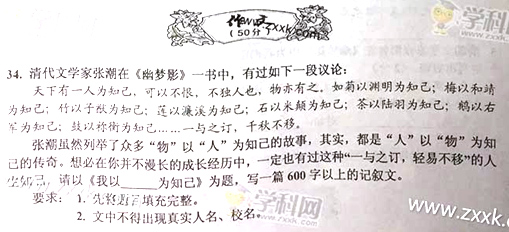 作文
zxxk.com
(50分)
学科网
34. 清代文学家张潮在《幽梦影》一书中，有过如下一段议论：
天下有一人为知己，可以不恨，不独人也，物亦有之。如菊以渊明为知己；梅以和靖
为知己；竹以子猷为知己；莲以濂溪为知己；石以米颠为知己；茶以陆羽为知己；鹅以右
军为知己；鼓以祢衡为知己……一与之订，千秋不移。
张潮虽然列举了众多“物”以“人”为知己的故事，其实，都是“人”以“物”为知
己的传奇。想必在你并不漫长的成长经历中，一定也有过这种“一与之订，轻易不移”的人
生知己，请以《我以_____为知己》为题，写一篇 600 字以上的记叙文。
要求：1. 先将题目填充完整。
2. 文中不得出现真实人名、校名。
学科网
www.zxxk.com